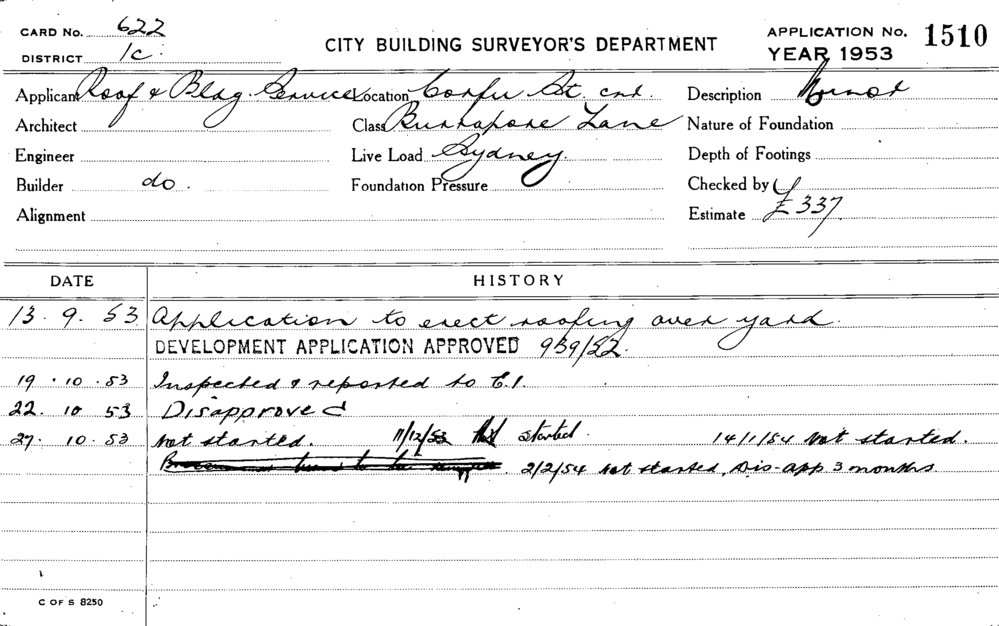 CARD No. 622
DISTRICT 1c.
CITY BUILDING SURVEYOR'S DEPARTMENT
APPLICATION No. 1510
YEAR 1953
Applicant Roof & Bldg. Services
Location Corfu St. cnr.
Description Minor
Architect
Class Burrapore Lane
Nature of Foundation
Engineer
Live Load Sydney.
Depth of Footings
Builder do.
Foundation Pressure
Checked by
Alignment
Estimate £337
DATE HISTORY
13.9.53 Application to erect roofing over yard.
DEVELOPMENT APPLICATION APPROVED 939/52.
19.10.53 Inspected & reported to C.I.
22.10 53 Disapproved
27.10.53 Not started. 11/12/53 Not started. 14/1/54 Not started.
2/2/54 Not started, Dis-app 3 months
C OF S 8250